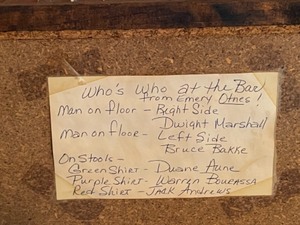 Who's Who at the Bar
From Emery Otnes!
Man on floor - Right Side
Dwight Marshall
Man on floor - Left Side
Bruce Bakke
On Stools -
Green Shirt - Duane Aune
Purple Shirt - Warren Bourassa
Red Shirt - Jack Andrews